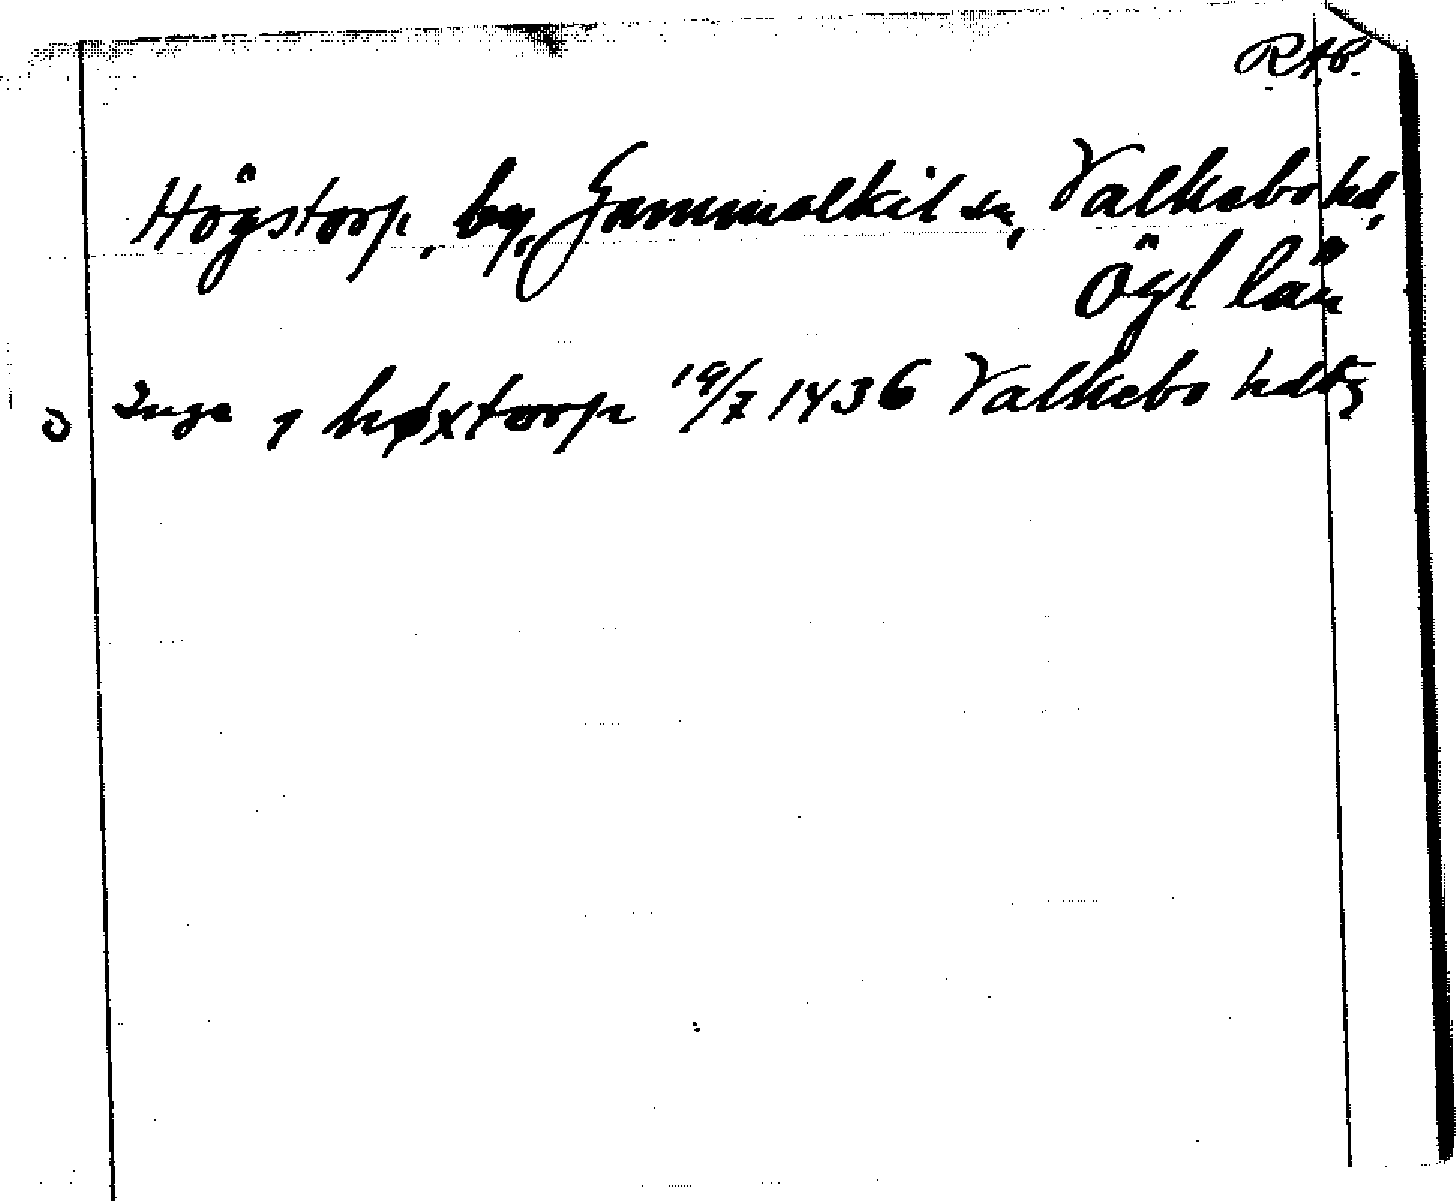 RAP.
Högstorp, by, Gammalkil sn, Valkebo hd,
Ögl län
Inge j høxtorp 19/7 1436 Valkebo hdtg